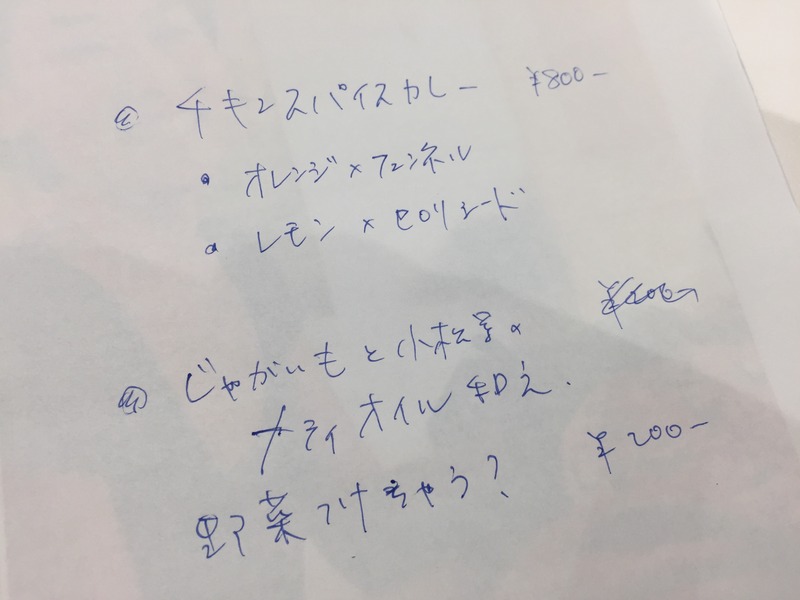 チキンスパイスカレー ¥800-
• オレンジ×フェンネル
• レモン×セロリシード
じゃがいもと小松菜の
オイル和え.
野菜つけちゃう? ¥200-